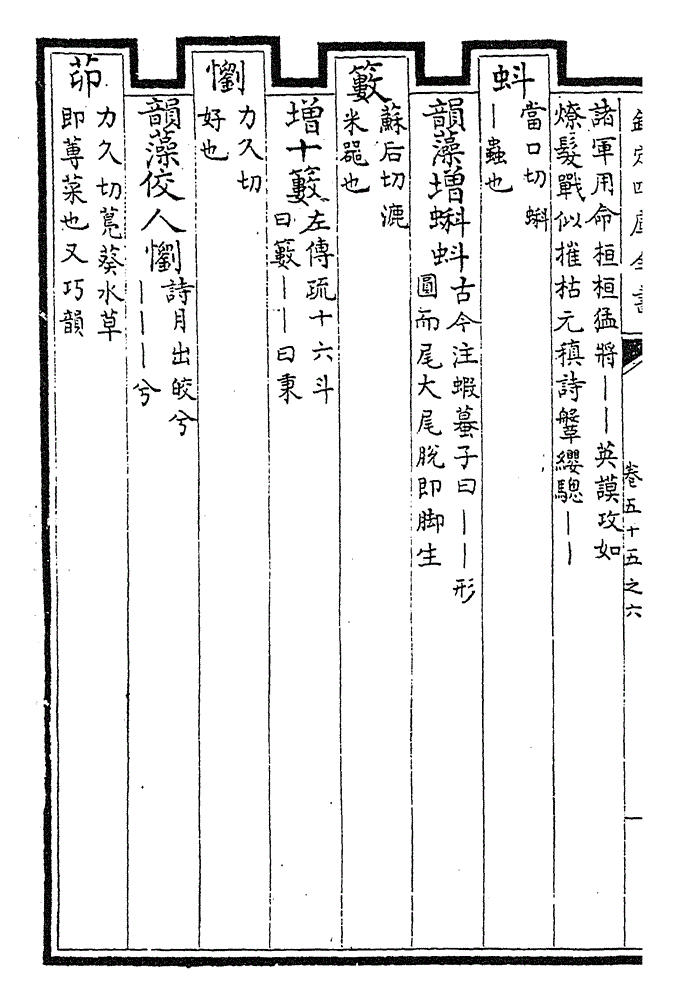 欽定四庫全書
卷五十五之六
諸軍用命桓桓猛將――英謨攻如
燎髮戰似摧枯元稹詩鞶纓驄――
蚪
當口切蝌
―蟲也
韻藻增蝌蚪
古今注蝦蟇子曰――形
圓而尾大尾脫即脚生
籔
蘇后切漉
米器也
增十籔
左傳疏十六斗
曰籔――曰秉
懰
力久切
好也
韻藻佼人懰
詩月出皎兮
―――兮
茆
力久切鳧葵水草
即蓴菜也又巧韻